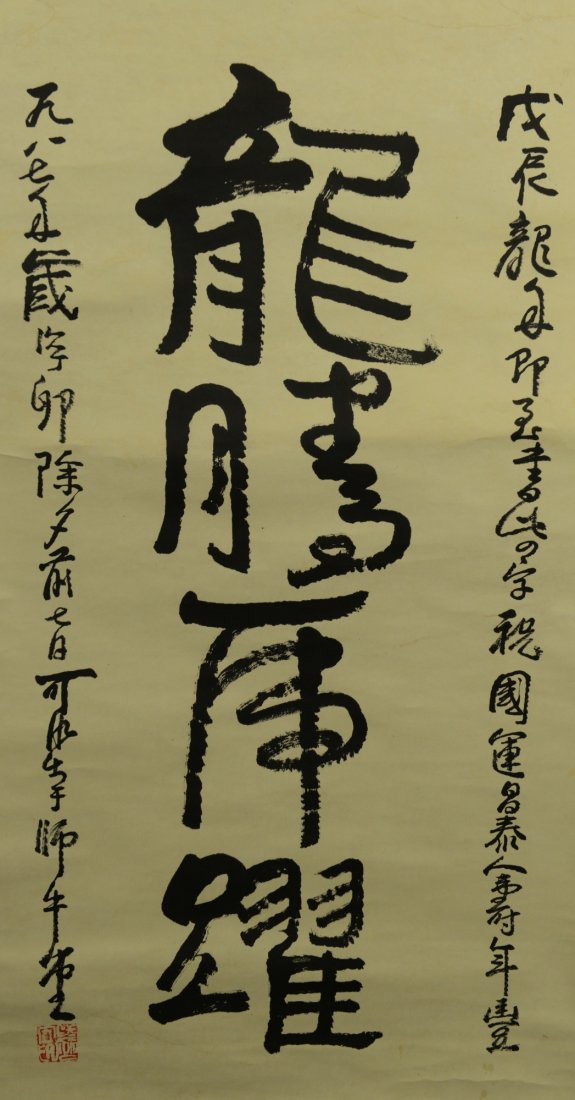 戊辰龍年即至書此四字祝國運昌泰人壽年豐
龍騰虎躍
一九八七年歲次丁卯除夕前七日可染於師牛堂